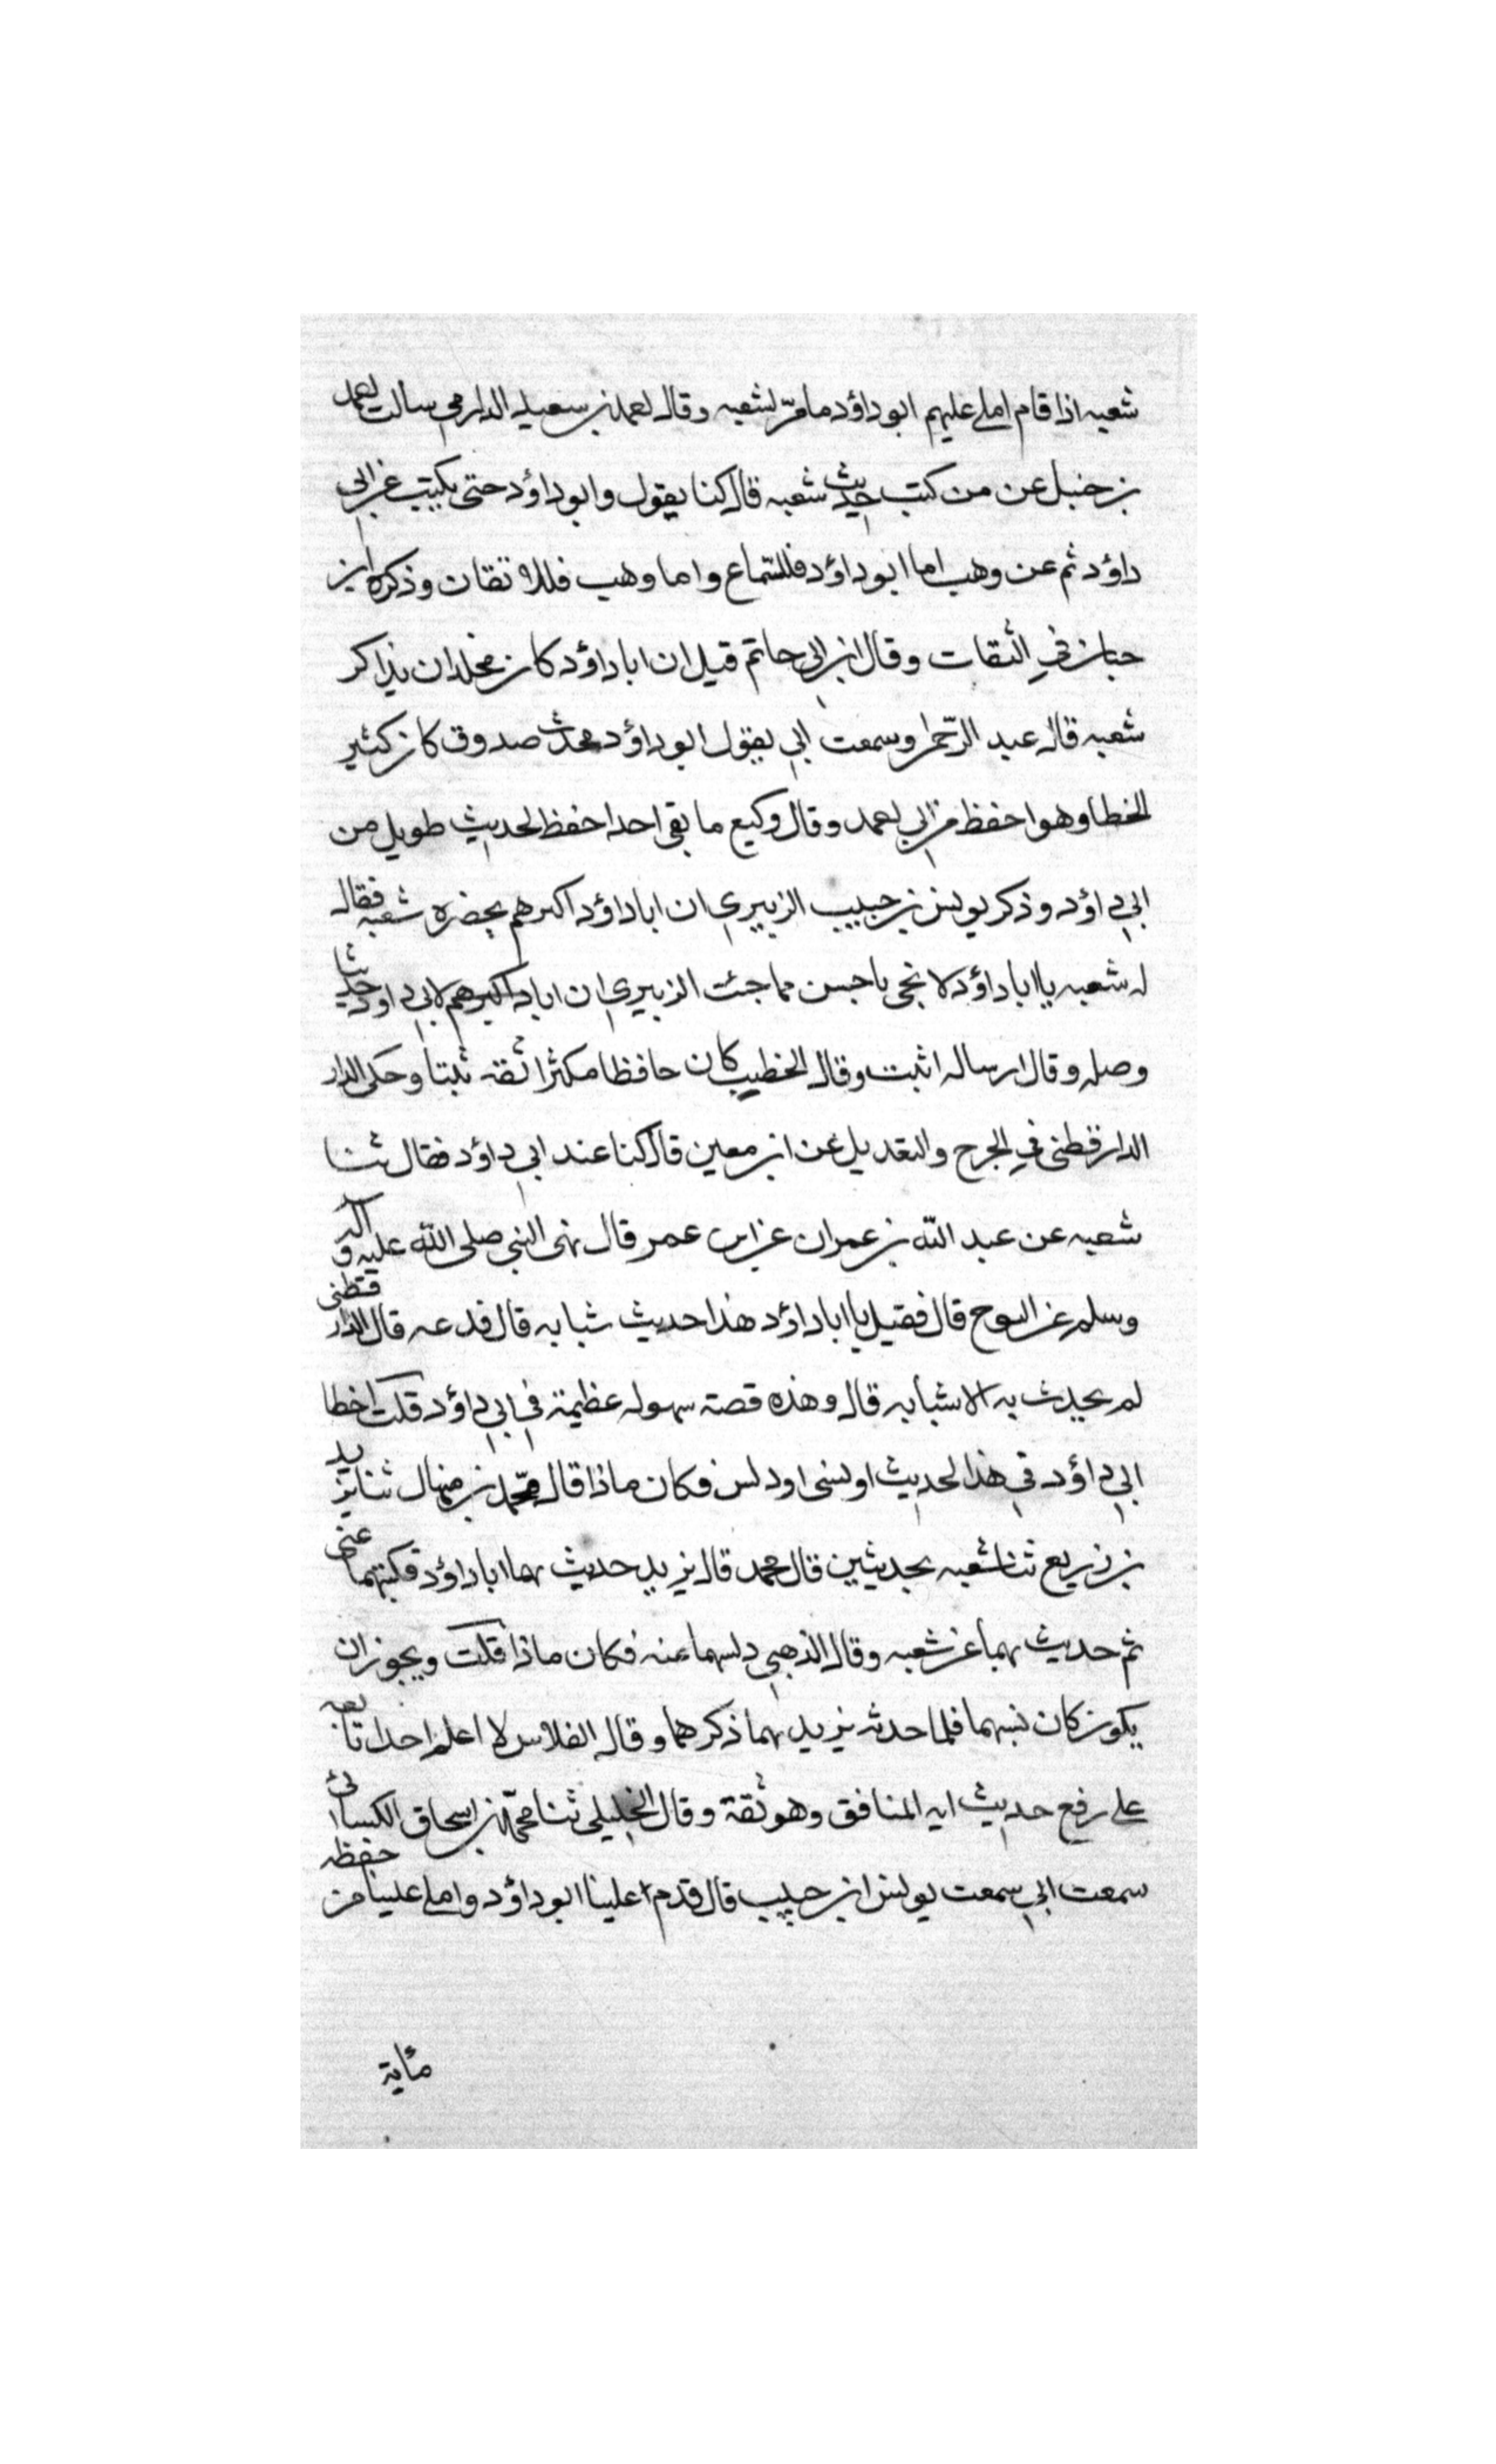 شعبه اذا قام املى عليهم ابو داؤد ما مرّ لشعبه وقال احمد بن سعيد الدارمي سالت احمد
بن حنبل عن من كتب حديث شعبه قال كنا يقول وابو داؤد حتى يكتب عن ابي
داؤد ثم عن وهب اما ابو داؤد فللسّماع واما وهب فللاتقان وذكره ابن
حبان في الثقات وقال ابن ابي حاتم قيل ان ابا داؤد كان محلد ان يذاكر
شعبه قال عبد الرّحمن وسمعت ابي يقول ابو داؤد محدث صدوق كان كثير
الخطا وهو احفظ من ابي احمد وقال وكيع ما بقى احد احفظ لحديث طويل من
ابي داؤد وذكر يونس بن حبيب الزبيري ان ابا داؤد اكرهم بحضرة شعبه فقال
له شعبه يا ابا داؤد لا نجى باحسن مما جئت الزبيري ان ابا داكبرهم لابي داود حديثا
وصله وقال ارساله اثبت وقال الخطيب كان حافظا مكثرا ثقه ثبتا وحكى الدار
الدارقطنى في الجرح والتعديل عن ابن معين قال كنا عند ابي داؤد فقال ثنا
شعبه عن عبد اللّه بن عمران عن ابن عمر قال نهى النبي صلى اللّه عليه واله
وسلم عن النوح قال فقيل يا ابا داؤد هذا حديث شبابه قال فدعه قال الدارقطنى
لم يحدث به الا شبابه قال وهذه قصة سهوله عظيمة في ابي داؤد قلت اخطا
ابي داؤد في هذا الحديث او نسى او دلس فكان ماذا قال محمّد بن منهال ثنا يزيد
بن زريع ثنا شعبه بحديثين قال محمد قال يزيد حديث بهما ابا داؤد فكتبهما عنى
ثم حديث بهما عن شعبه وقال الذهبي دلسهما عنه فكان ماذا قلت ويجوز ان
يكون كان نسيهما فلما حدثه يزيد بهما ذكرهما وقال الفلاس لا اعلم احدا تابعه
على رفع حديث ايه المنافق وهو ثقة وقال الخليلي ثنا محمّد بن اسحاق الكسائى
سمعت ابي سمعت يونس ابن حبيب قال قدم علينا ابو داؤد واملى علينا من حفظه
مئاية